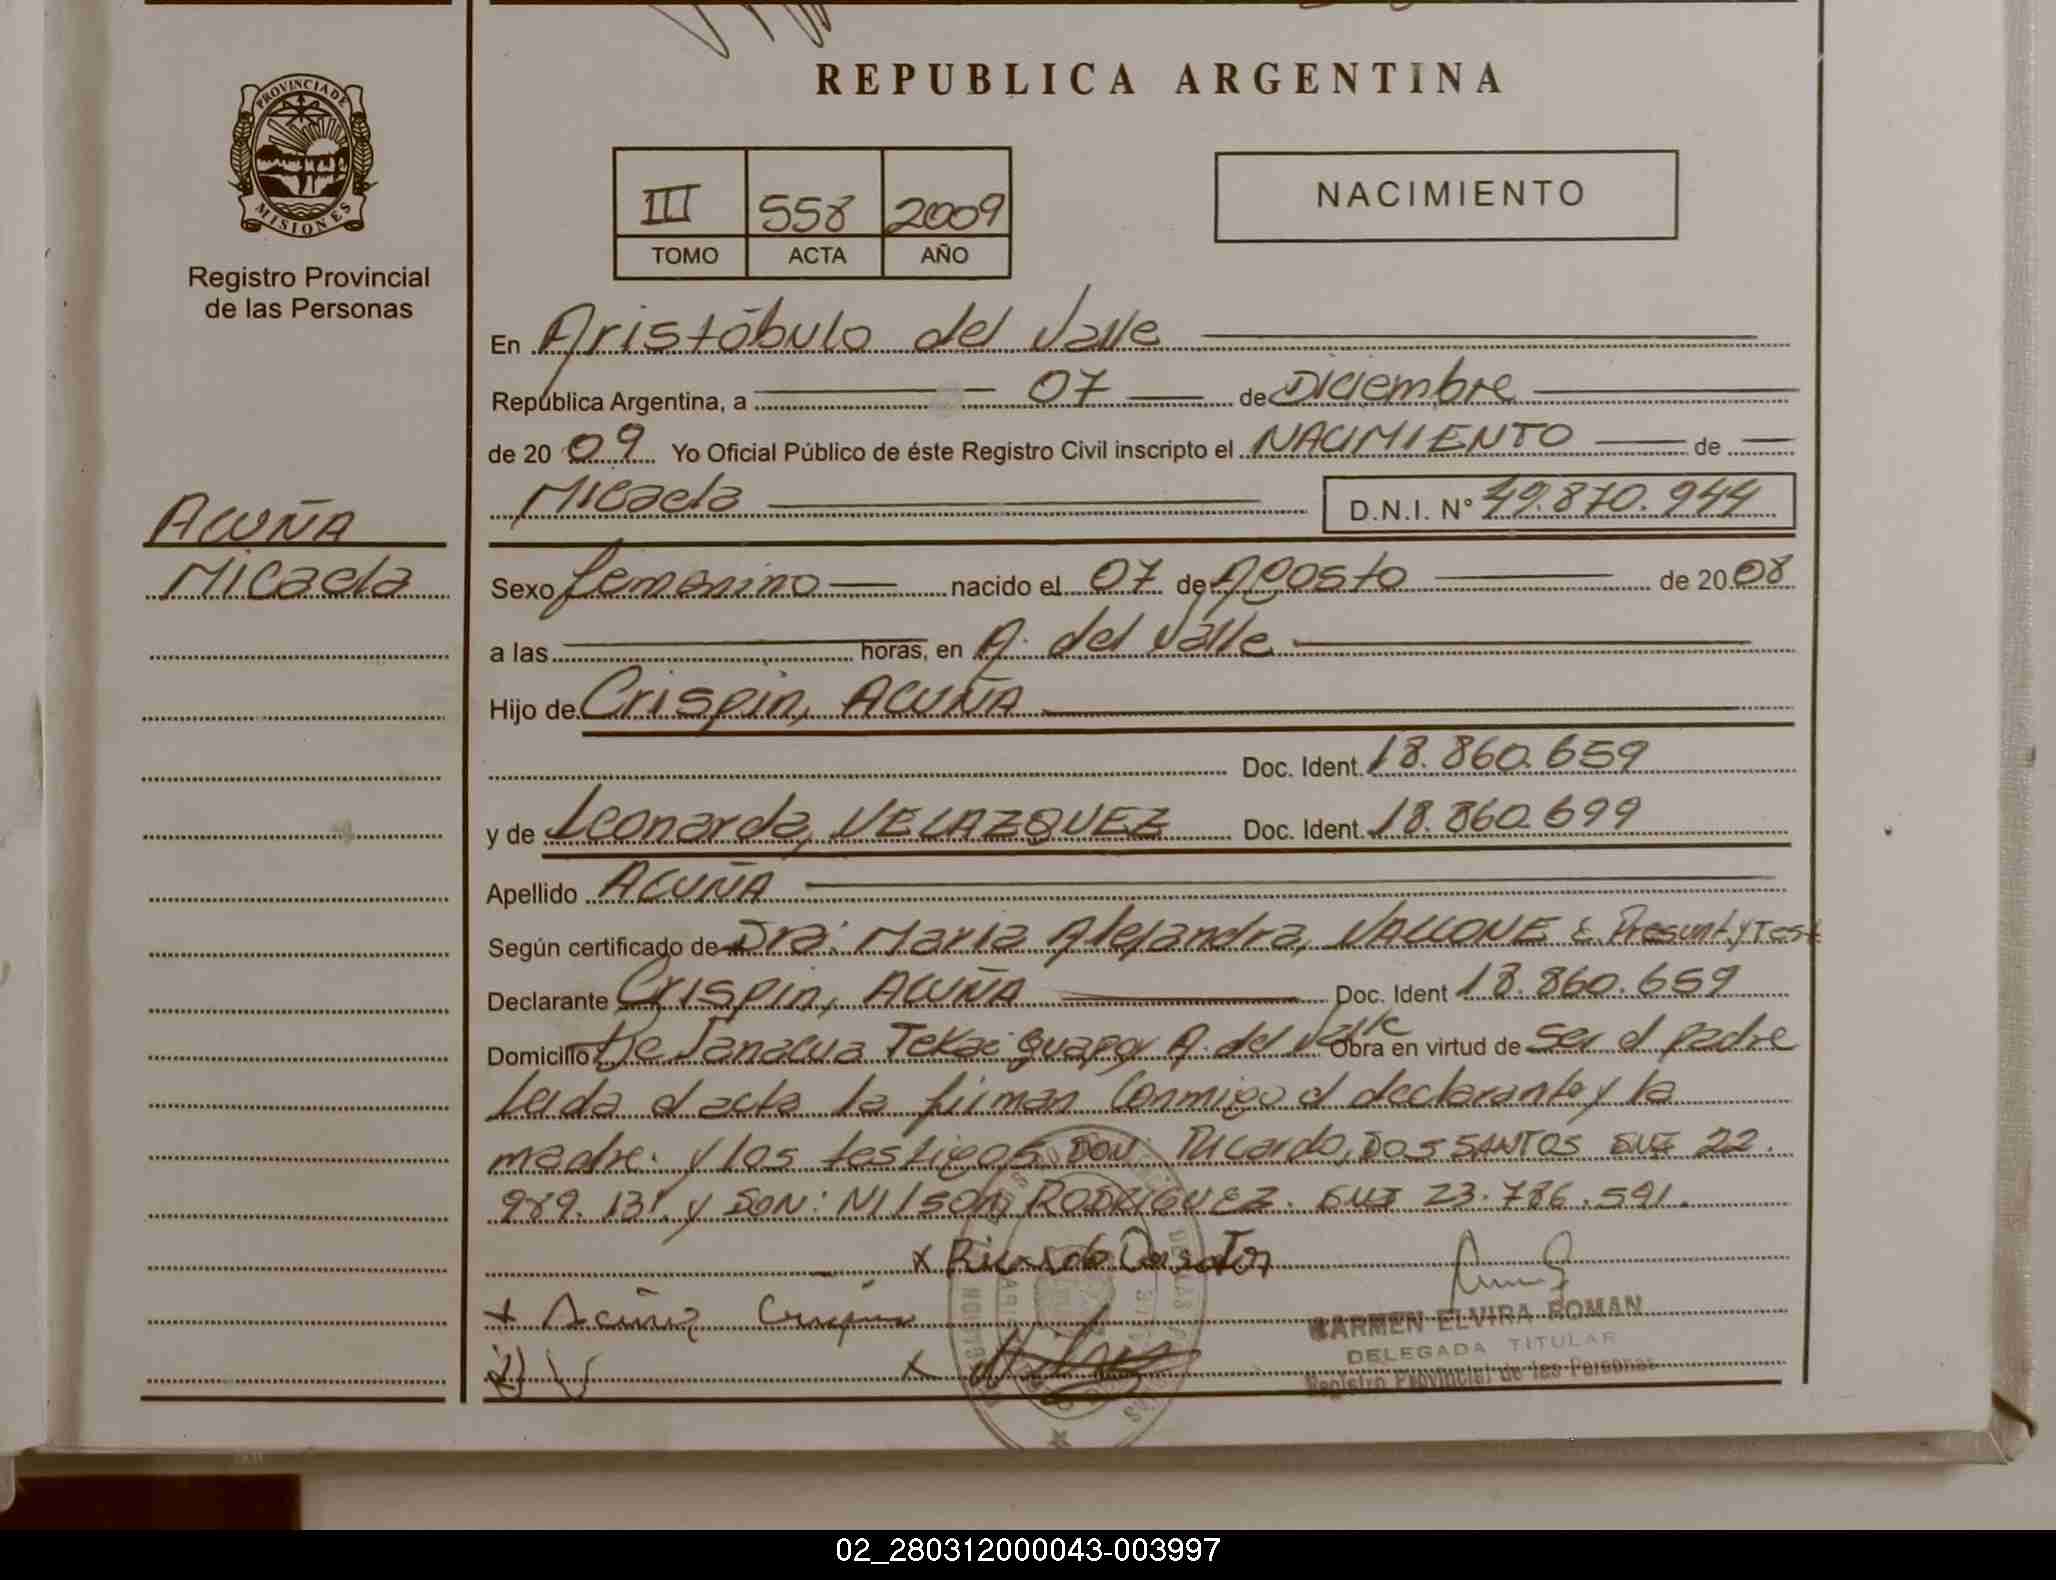 PROVINCIA DE
MISIONES
Registro Provincial
de las Personas
ACUÑA
Micaela
REPUBLICA ARGENTINA
III 558 2009
TOMO ACTA AÑO
NACIMIENTO
En Aristóbulo del Valle
República Argentina, a 07 de Diciembre
de 20 09 Yo Oficial Público de éste Registro Civil inscripto el NACIMIENTO de
Micaela D.N.I. N° 49.870.944
Sexo femenino nacido el 07 de Agosto de 20 08
a las horas, en A. del Valle
Hijo de Crispin, ACUÑA
Doc. Ident. 18.860.659
y de Leonarda, VELAZQUEZ Doc. Ident. 18.860.699
Apellido ACUÑA
Según certificado de Dra: Maria Alejandra, VALLONE E. Presunt y Test
Declarante Crispin, ACUÑA Doc. Ident 18.860.659
Domicilio A. del Valle Obra en virtud de ser el padre
Leida el acta la firman Conmigo el declarante y la
madre. y los testigos DON: Ricardo, DOS SANTOS DNI 22.
989.131. y DON: NILSON, RODRIGUEZ. DNI 23.786.591.
x Ricardo
+ Acuña Crispin
CARMEN ELVIRA ROMAN
DELEGADA TITULAR
Registro Provincial de las Personas
02_280312000043-003997